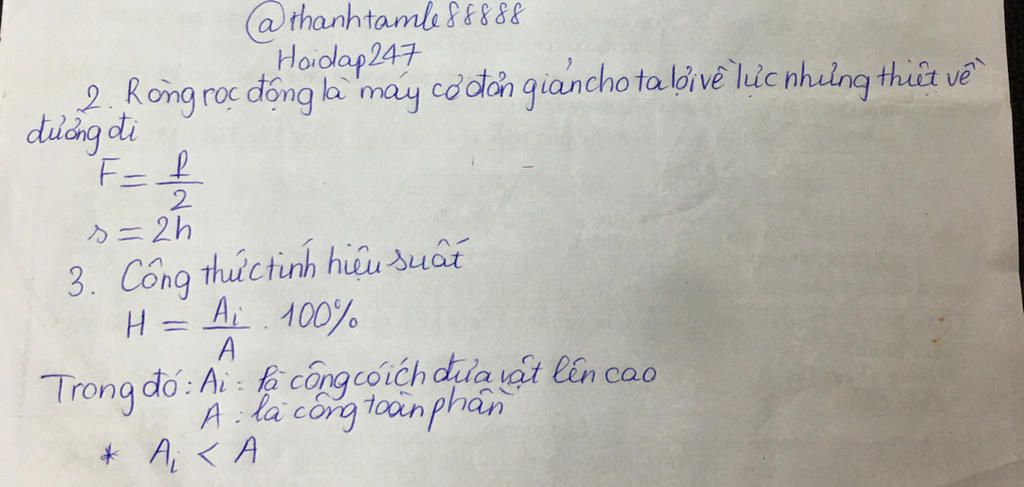 @thanhtamle88888
Hoidap247
2. Ròng rọc động là máy cơ đơn giản cho ta lợi về lực nhưng thiệt về
đường đi
F = P/2
s = 2h
3. Công thức tính hiệu suất
H = Ai/A . 100%
Trong đó: Ai: là công có ích đưa vật lên cao
A: là công toàn phần
* Ai < A